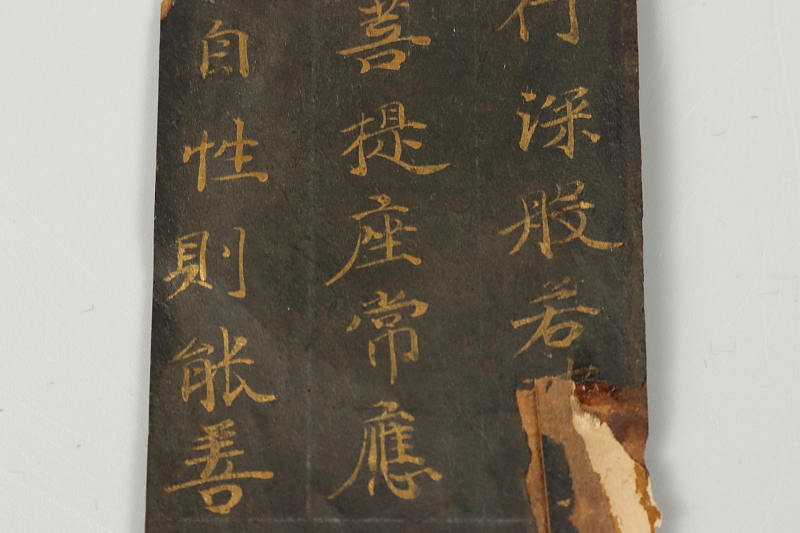 行深般若
菩提座常應
自性則能善